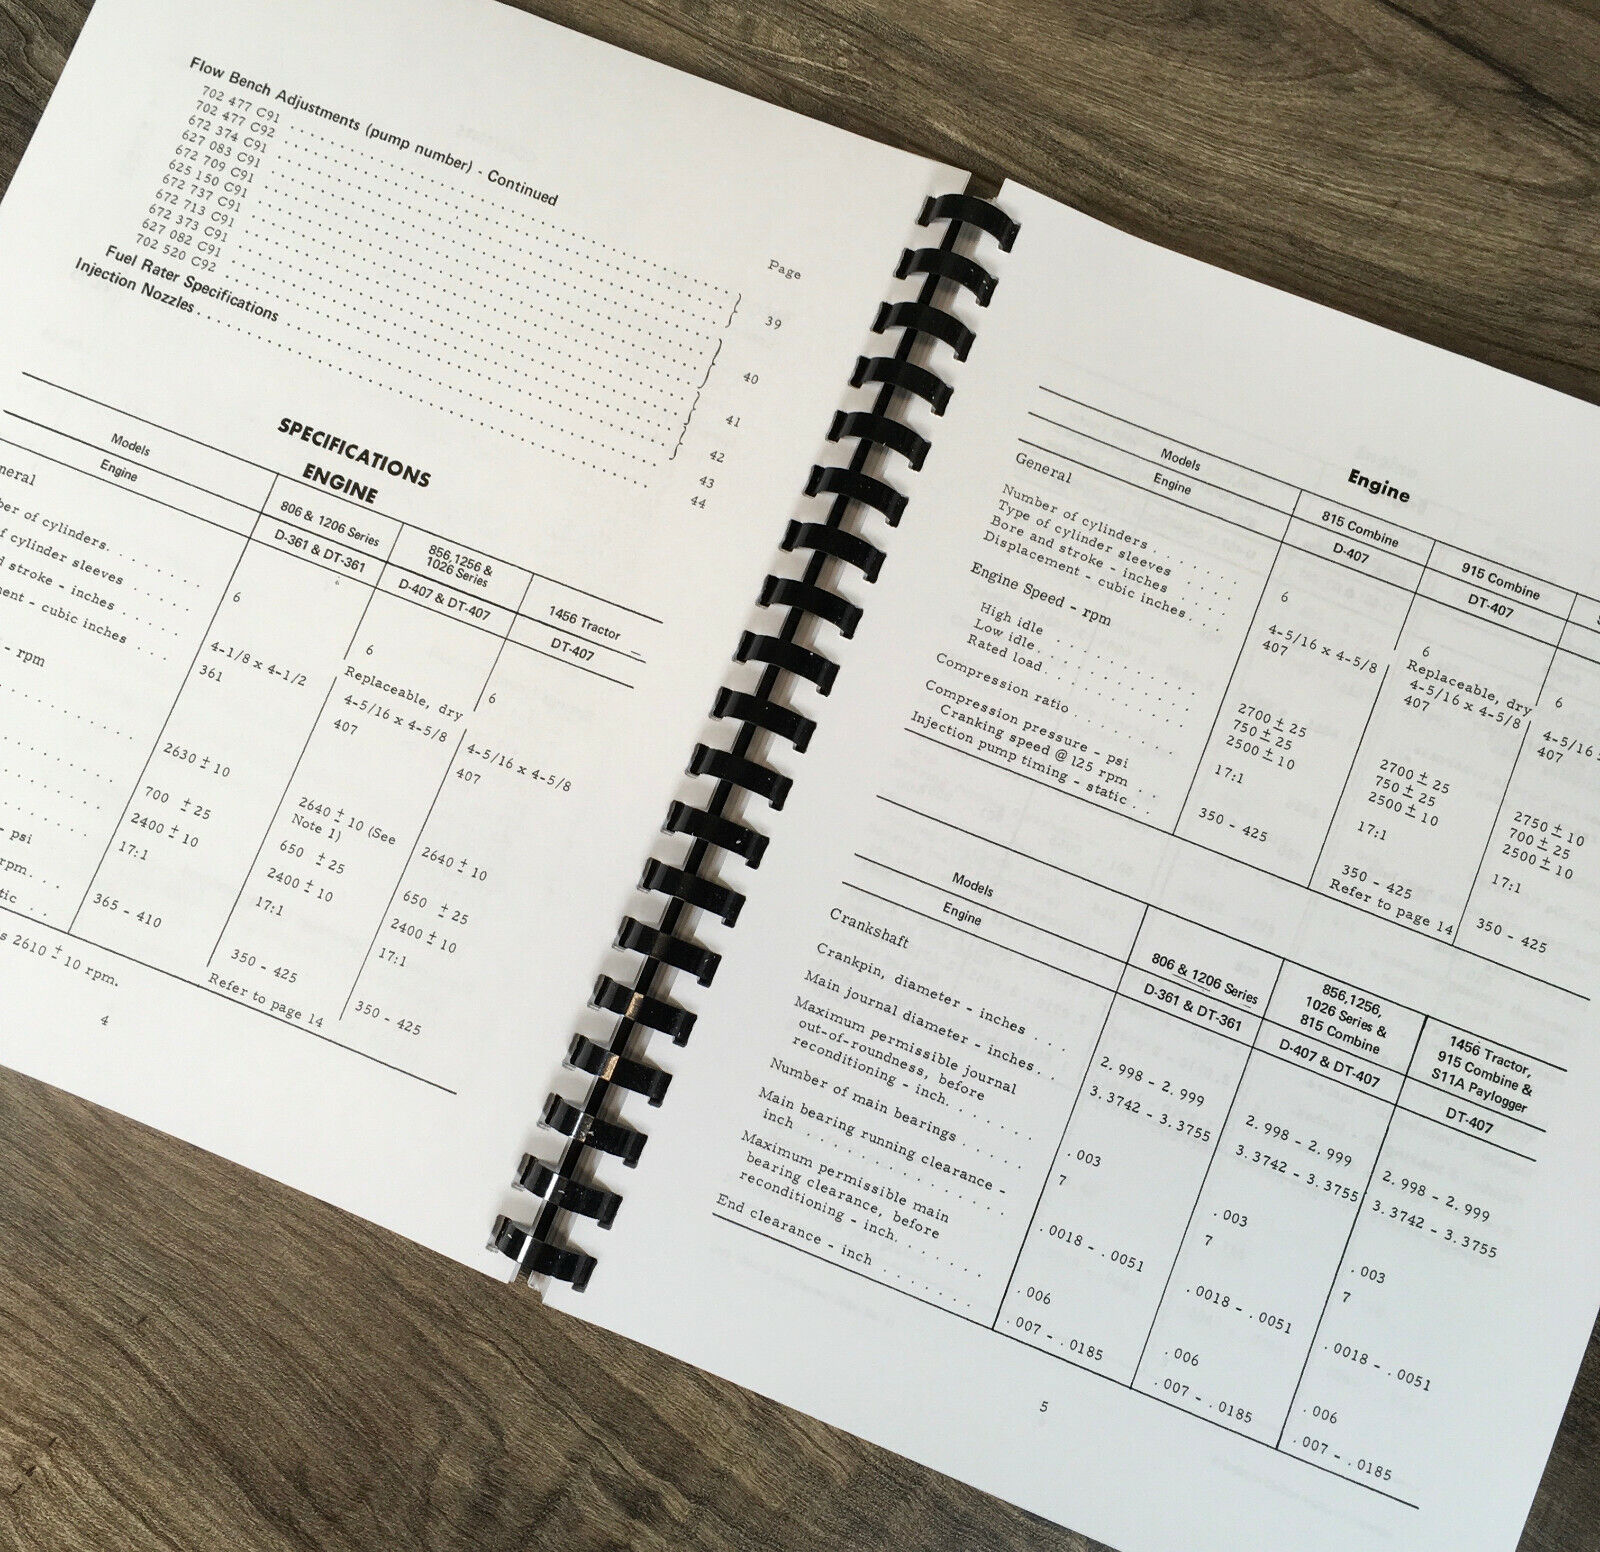 Flow Bench Adjustments (pump number) - Continued
Page
702 477 C91
702 477 C92
672 374 C91
627 083 C91
672 709 C91
625 150 C91
672 737 C91
672 713 C91
672 373 C91
627 082 C91
702 520 C92
39
40
41
42
Fuel Rater Specifications 43
Injection Nozzles 44
SPECIFICATIONS
ENGINE
Models 806 & 1206 Series 856,1256 & 1026 Series 1456 Tractor
Engine D-361 & DT-361 D-407 & DT-407 DT-407
neral
ber of cylinders 6 6 6
of cylinder sleeves Replaceable, dry
d stroke - inches 4-1/8 x 4-1/2 4-5/16 x 4-5/8 4-5/16 x 4-5/8
ment - cubic inches 361 407 407
- rpm
2630 ± 10 2640 ± 10 (See Note 1) 2640 ± 10
700 ± 25 650 ± 25 650 ± 25
2400 ± 10 2400 ± 10 2400 ± 10
17:1 17:1 17:1
- psi
rpm. 365 - 410 350 - 425 350 - 425
tic Refer to page 14
s 2610 ± 10 rpm.
4
Engine
Models 815 Combine 915 Combine
Engine D-407 DT-407
General
Number of cylinders 6 6 6
Type of cylinder sleeves Replaceable, dry
Bore and stroke - inches 4-5/16 x 4-5/8 4-5/16 x 4-5/8 4-5/16
Displacement - cubic inches 407 407 407
Engine Speed - rpm
High idle 2700 ± 25 2700 ± 25 2750 ± 10
Low idle 750 ± 25 750 ± 25 700 ± 25
Rated load 2500 ± 10 2500 ± 10 2500 ± 10
Compression ratio 17:1 17:1 17:1
Compression pressure - psi
Cranking speed @ 125 rpm 350 - 425 350 - 425 350 - 425
Injection pump timing - static Refer to page 14
Models 806 & 1206 Series 856,1256, 1026 Series & 815 Combine 1456 Tractor, 915 Combine & S11A Paylogger
Engine D-361 & DT-361 D-407 & DT-407 DT-407
Crankshaft
Crankpin, diameter - inches 2.998 - 2.999 2.998 - 2.999 2.998 - 2.999
Main journal diameter - inches 3.3742 - 3.3755 3.3742 - 3.3755 3.3742 - 3.3755
Maximum permissible journal
out-of-roundness, before
reconditioning - inch .003 .003 .003
Number of main bearings 7 7 7
Main bearing running clearance -
inch .0018 - .0051 .0018 - .0051 .0018 - .0051
Maximum permissible main
bearing clearance, before
reconditioning - inch .006 .006 .006
End clearance - inch .007 - .0185 .007 - .0185 .007 - .0185
5